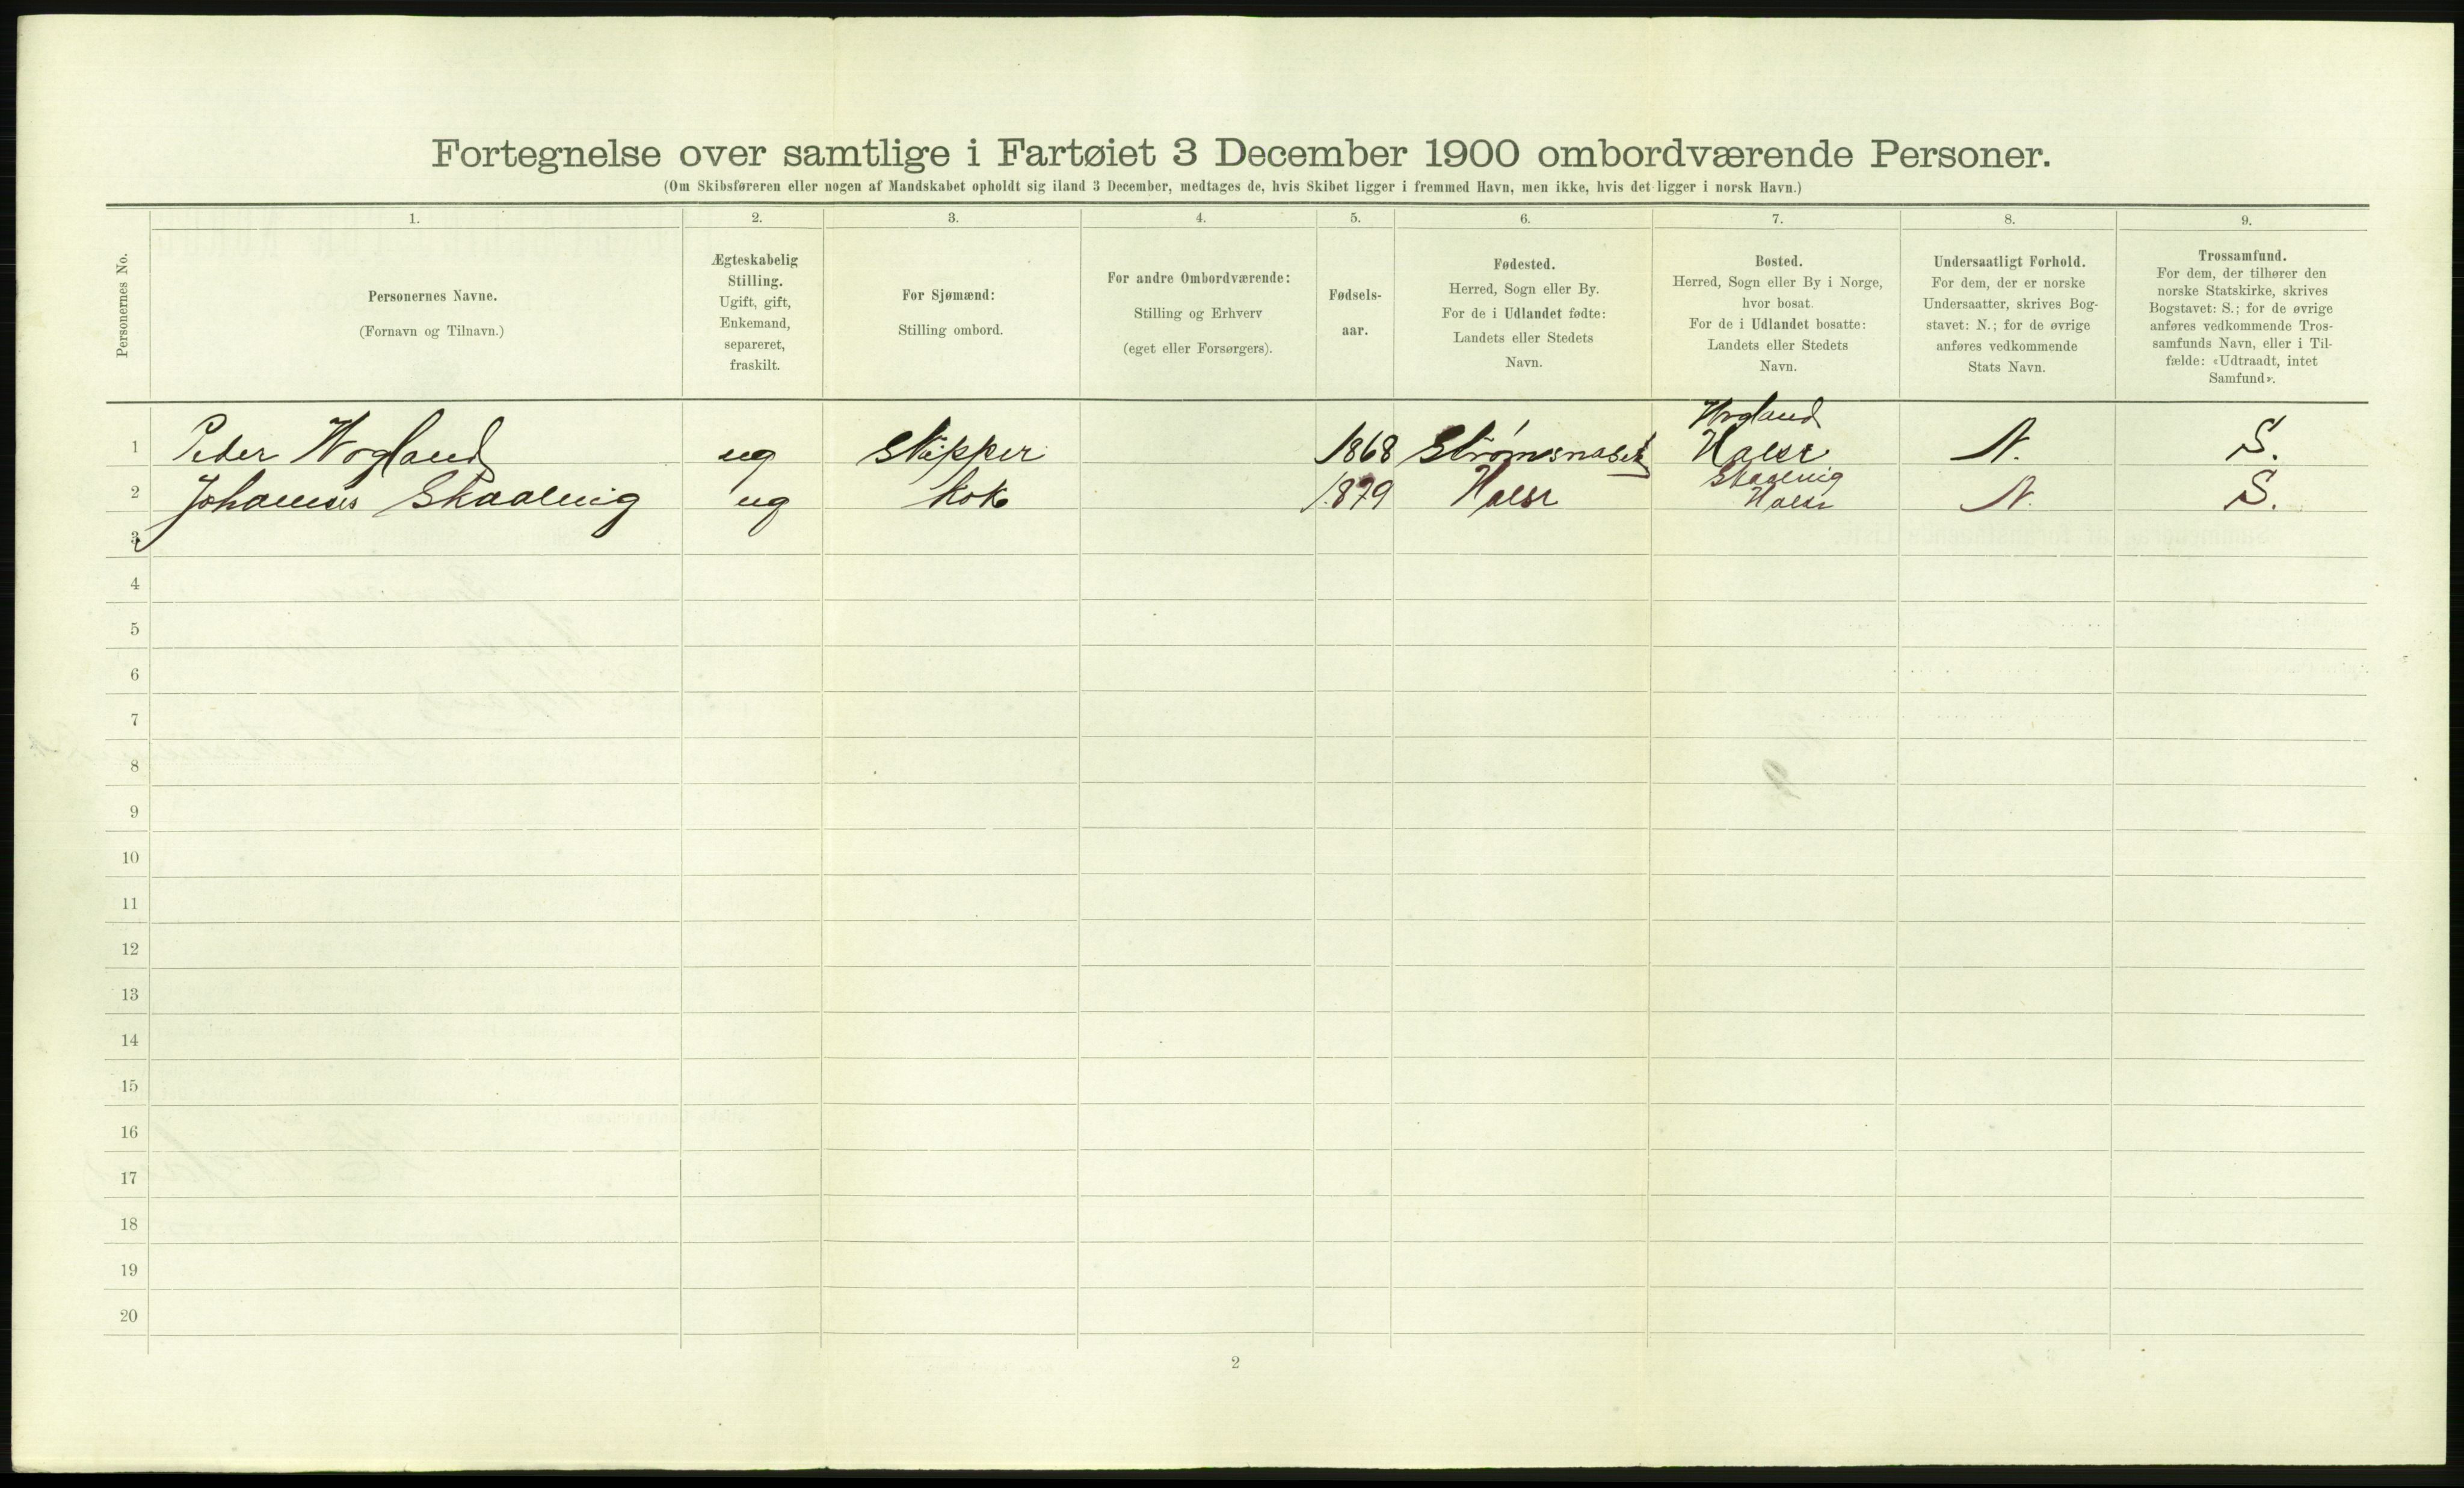 Fortegnelse over samtlige i Fartøiet 3 December 1900 ombordværende Personer.
(Om Skibsføreren eller nogen af Mandskabet opholdt sig iland 3 December, medtages de, hvis Skibet ligger i fremmed Havn, men ikke, hvis det ligger i norsk Havn.)
Personernes No.
1.
Personernes Navne.
(Fornavn og Tilnavn.)
2.
Ægteskabelig
Stilling.
Ugift, gift,
Enkemand,
separeret,
fraskilt.
3.
For Sjømænd:
Stilling ombord.
4.
For andre Ombordværende:
Stilling og Erhverv
(eget eller Forsørgers).
5.
Fødsels-
aar.
6.
Fødested.
Herred, Sogn eller By.
For de i Udlandet fødte:
Landets eller Stedets
Navn.
7.
Bosted.
Herred, Sogn eller By i Norge,
hvor bosat.
For de i Udlandet bosatte:
Landets eller Stedets
Navn.
8.
Undersaatligt Forhold.
For dem, der er norske
Undersaatter, skrives Bog-
stavet: N.; for de øvrige
anføres vedkommende
Stats Navn.
9.
Trossamfund.
For dem, der tilhører den
norske Statskirke, skrives
Bogstavet: S.; for de øvrige
anføres vedkommende Tros-
samfunds Navn, eller i Til-
fælde: «Udtraadt, intet
Samfund».
Wogland
1 Peder Wogland ug Skipper 1868 Halse N. S.
2 Johannes ug kok 1879 Halse Halse N. S.
3
4
5
6
7
8
9
10
11
12
13
14
15
16
17
18
19
20
2